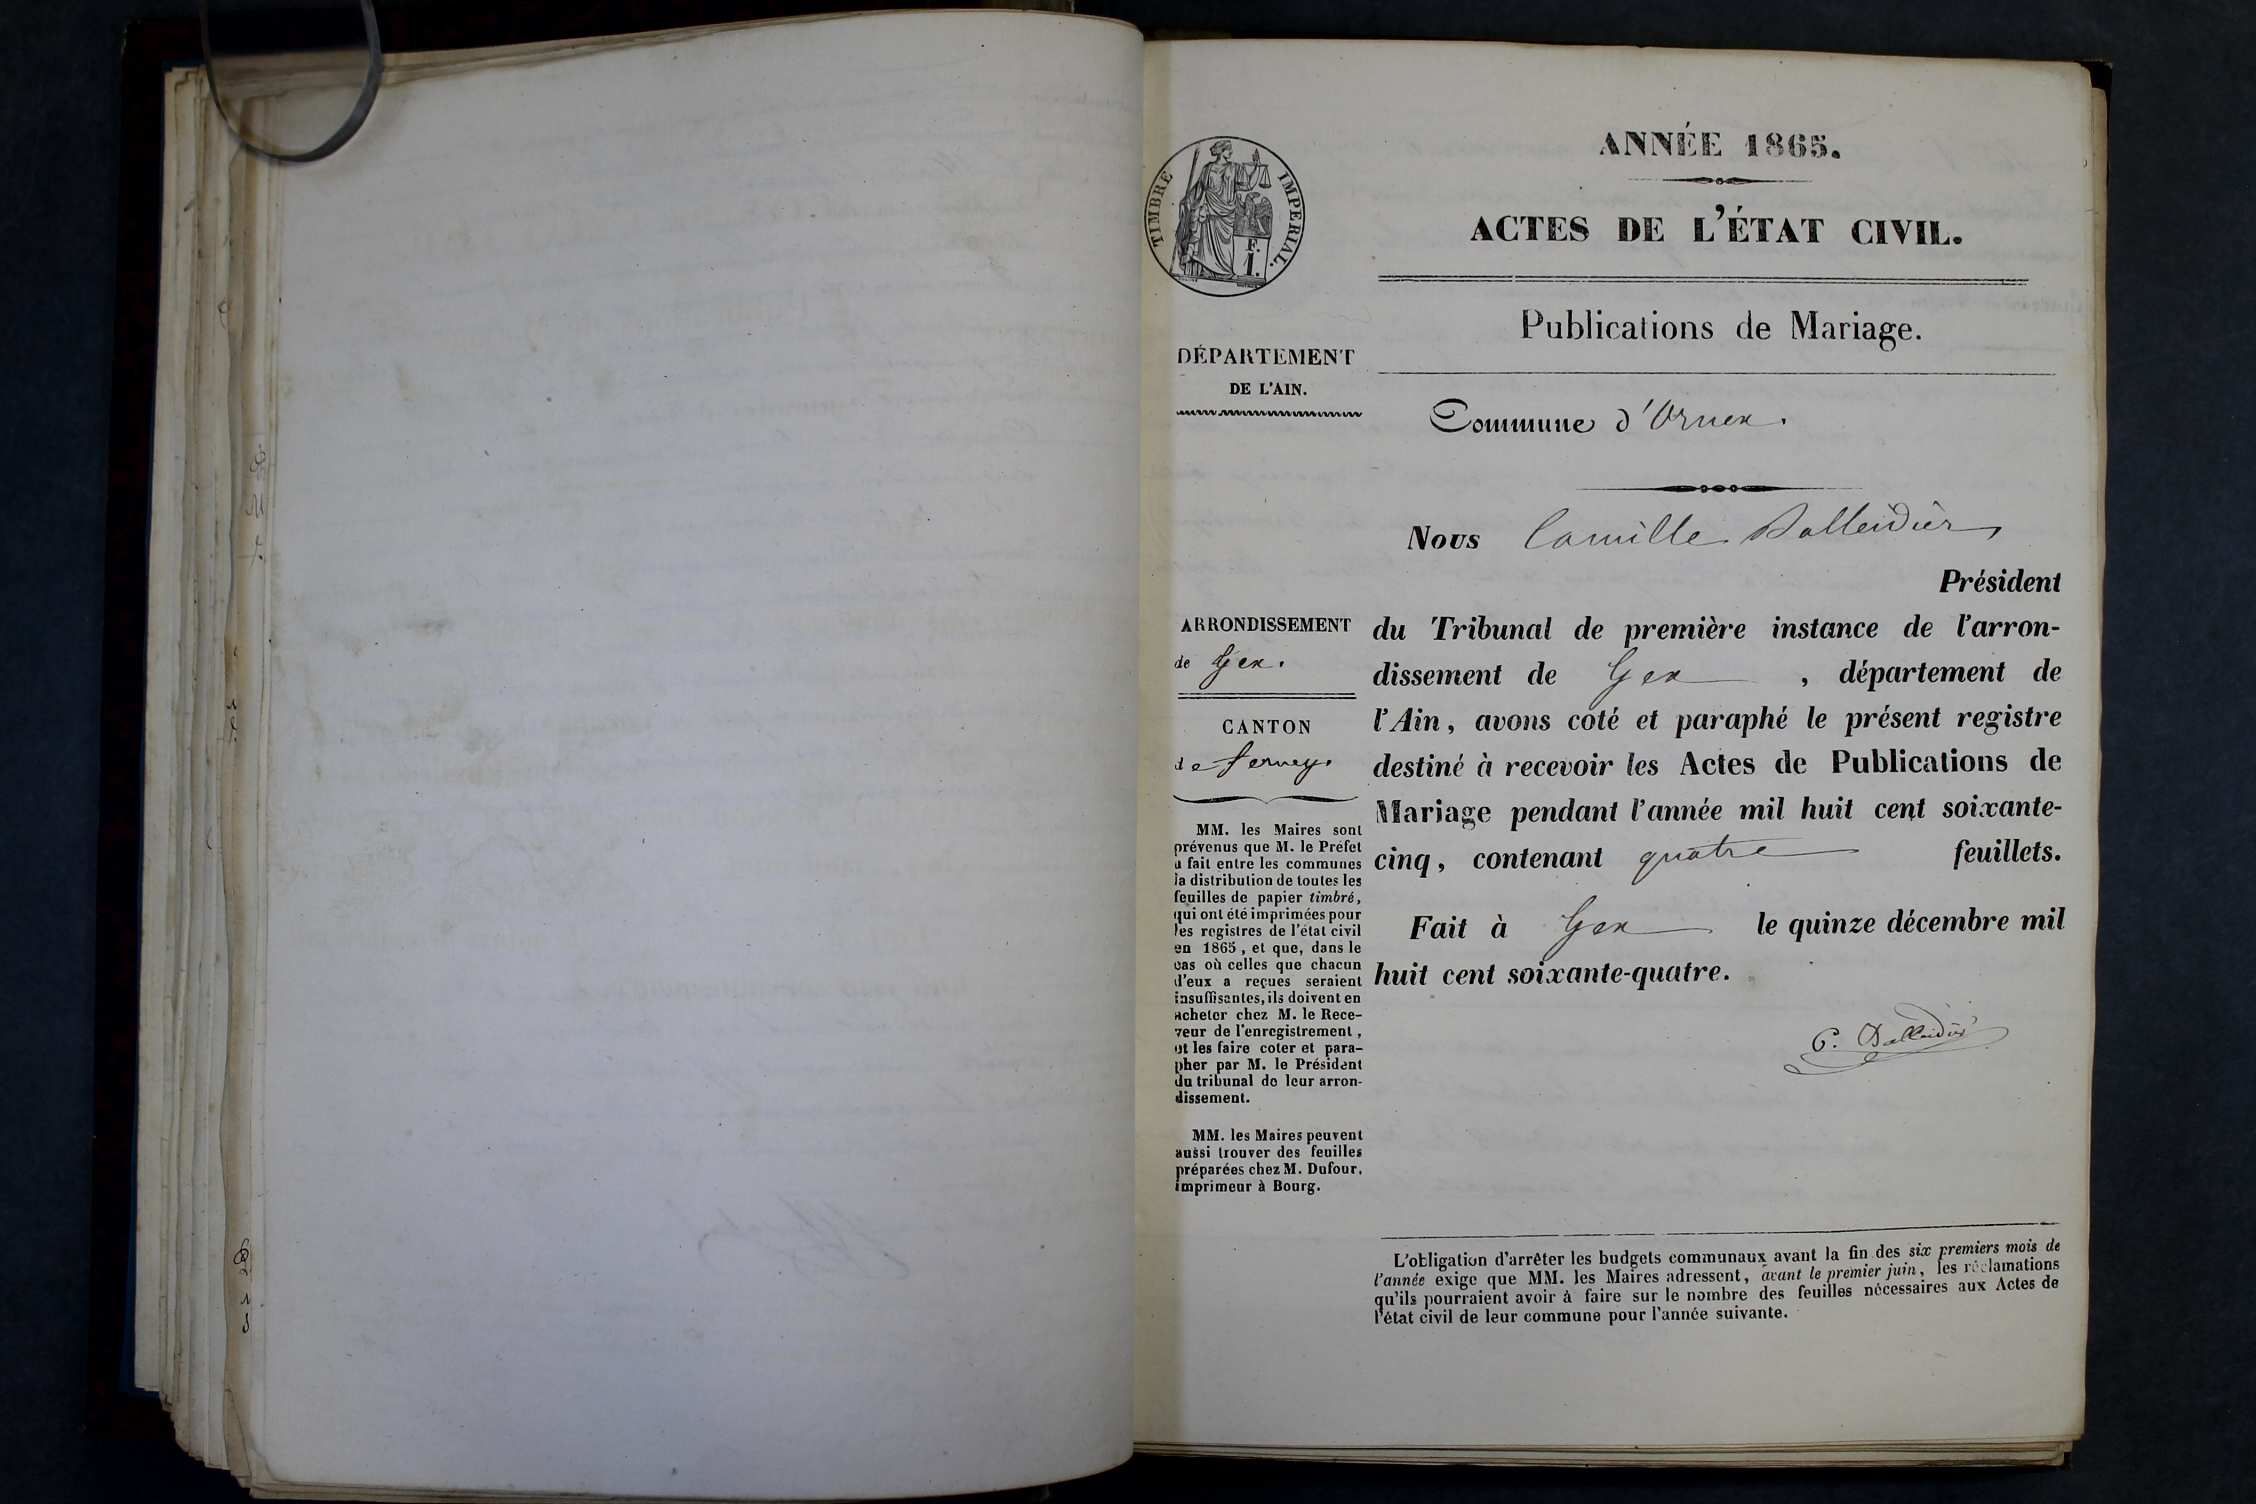 ANNÉE 1865.
ACTES DE L'ÉTAT CIVIL.
Publications de Mariage.
TIMBRE IMPERIAL.
F.
1.
DÉPARTEMENT
DE L'AIN.
Commune d'Ornex.
Nous Camille Balleidier
Président
du Tribunal de première instance de l'arron-
dissement de Gex , département de
l'Ain, avons coté et paraphé le présent registre
destiné à recevoir les Actes de Publications de
Mariage pendant l'année mil huit cent soixante-
cinq, contenant quatre feuillets.
Fait à Gex le quinze décembre mil
huit cent soixante-quatre.
C. Balleidier
ARRONDISSEMENT
de Gex.
CANTON
de Ferney.
MM. les Maires sont
prévenus que M. le Préfet
a fait entre les communes
la distribution de toutes les
feuilles de papier timbré,
qui ont été imprimées pour
les registres de l'état civil
en 1865, et que, dans le
cas où celles que chacun
d'eux a reçues seraient
insuffisantes, ils doivent en
acheter chez M. le Rece-
veur de l'enregistrement,
et les faire coter et para-
pher par M. le Président
du tribunal de leur arron-
dissement.
MM. les Maires peuvent
aussi trouver des feuilles
préparées chez M. Dufour,
imprimeur à Bourg.
L'obligation d'arrêter les budgets communaux avant la fin des six premiers mois de
l'année exige que MM. les Maires adressent, avant le premier juin, les réclamations
qu'ils pourraient avoir à faire sur le nombre des feuilles nécessaires aux Actes de
l'état civil de leur commune pour l'année suivante.